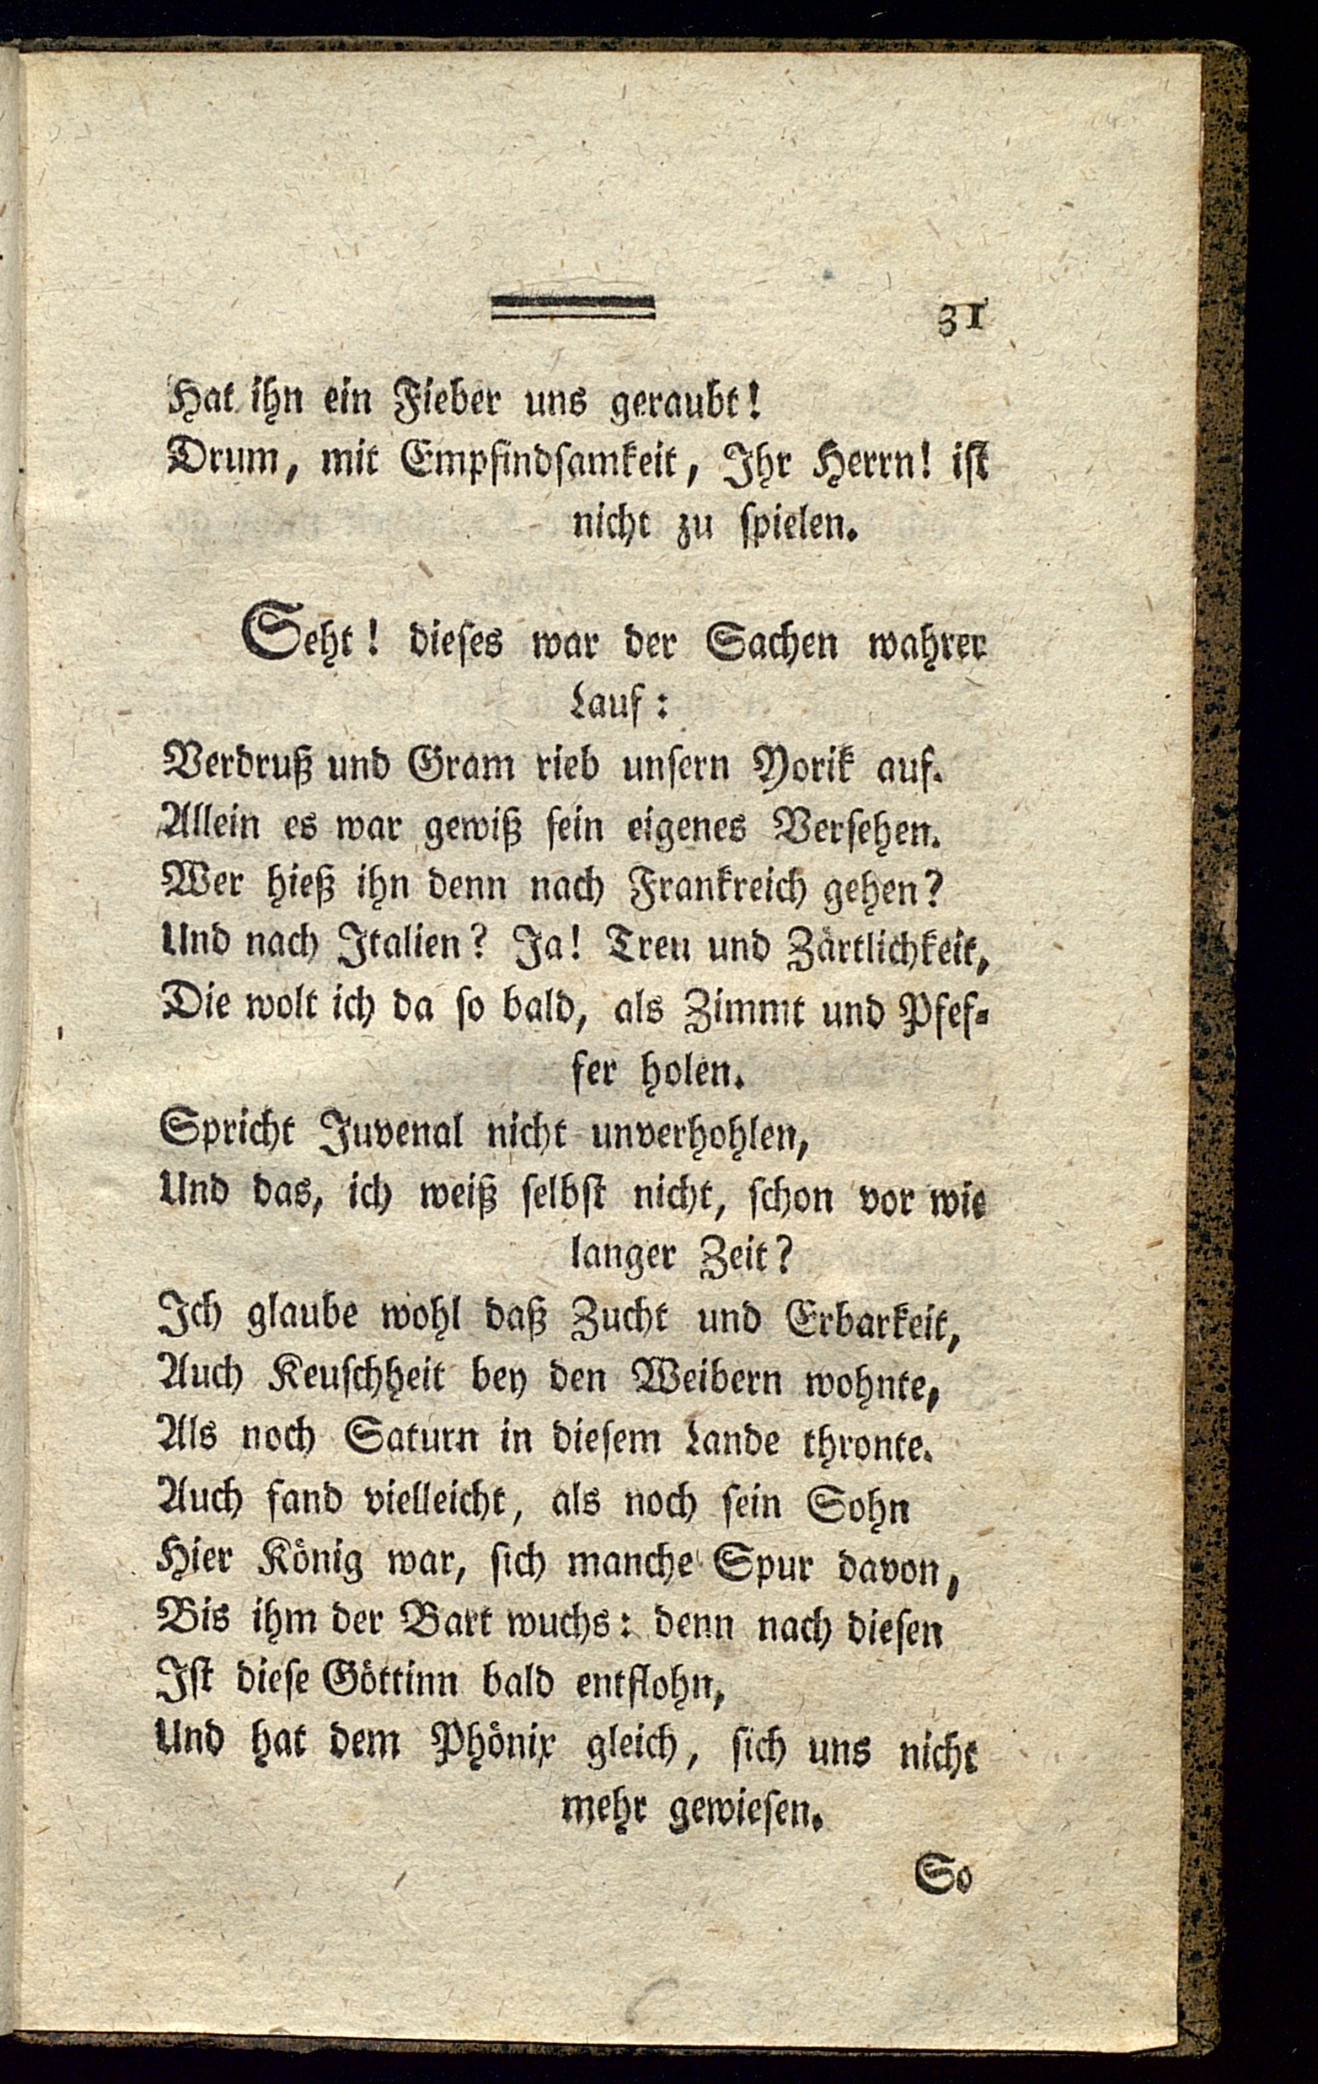 31
Hat ihn ein Fieber uns geraubt!
Drum, mit Empfindsamkeit, Ihr Herrn! ist
nicht zu spielen.
Seht! dieses war der Sachen wahrer
Lauf:
Verdruß und Gram rieb unsern Yorik auf.
Allein es war gewiß sein eigenes Versehen.
Wer hieß ihn denn nach Frankreich gehen?
Und nach Italien? Ja! Treu und Zärtlichkeit,
Die wolt ich da so bald, als Zimmt und Pfef-
fer holen.
Spricht Juvenal nicht unverhohlen,
Und das, ich weiß selbst nicht, schon vor wie
langer Zeit?
Ich glaube wohl daß Zucht und Erbarkeit,
Auch Keuschheit bey den Weibern wohnte,
Als noch Saturn in diesem Lande thronte.
Auch fand vielleicht, als noch sein Sohn
Hier König war, sich manche Spur davon,
Bis ihm der Bart wuchs: denn nach diesen
Ist diese Göttinn bald entflohn,
Und hat dem Phönix gleich, sich uns nicht
mehr gewiesen.
So